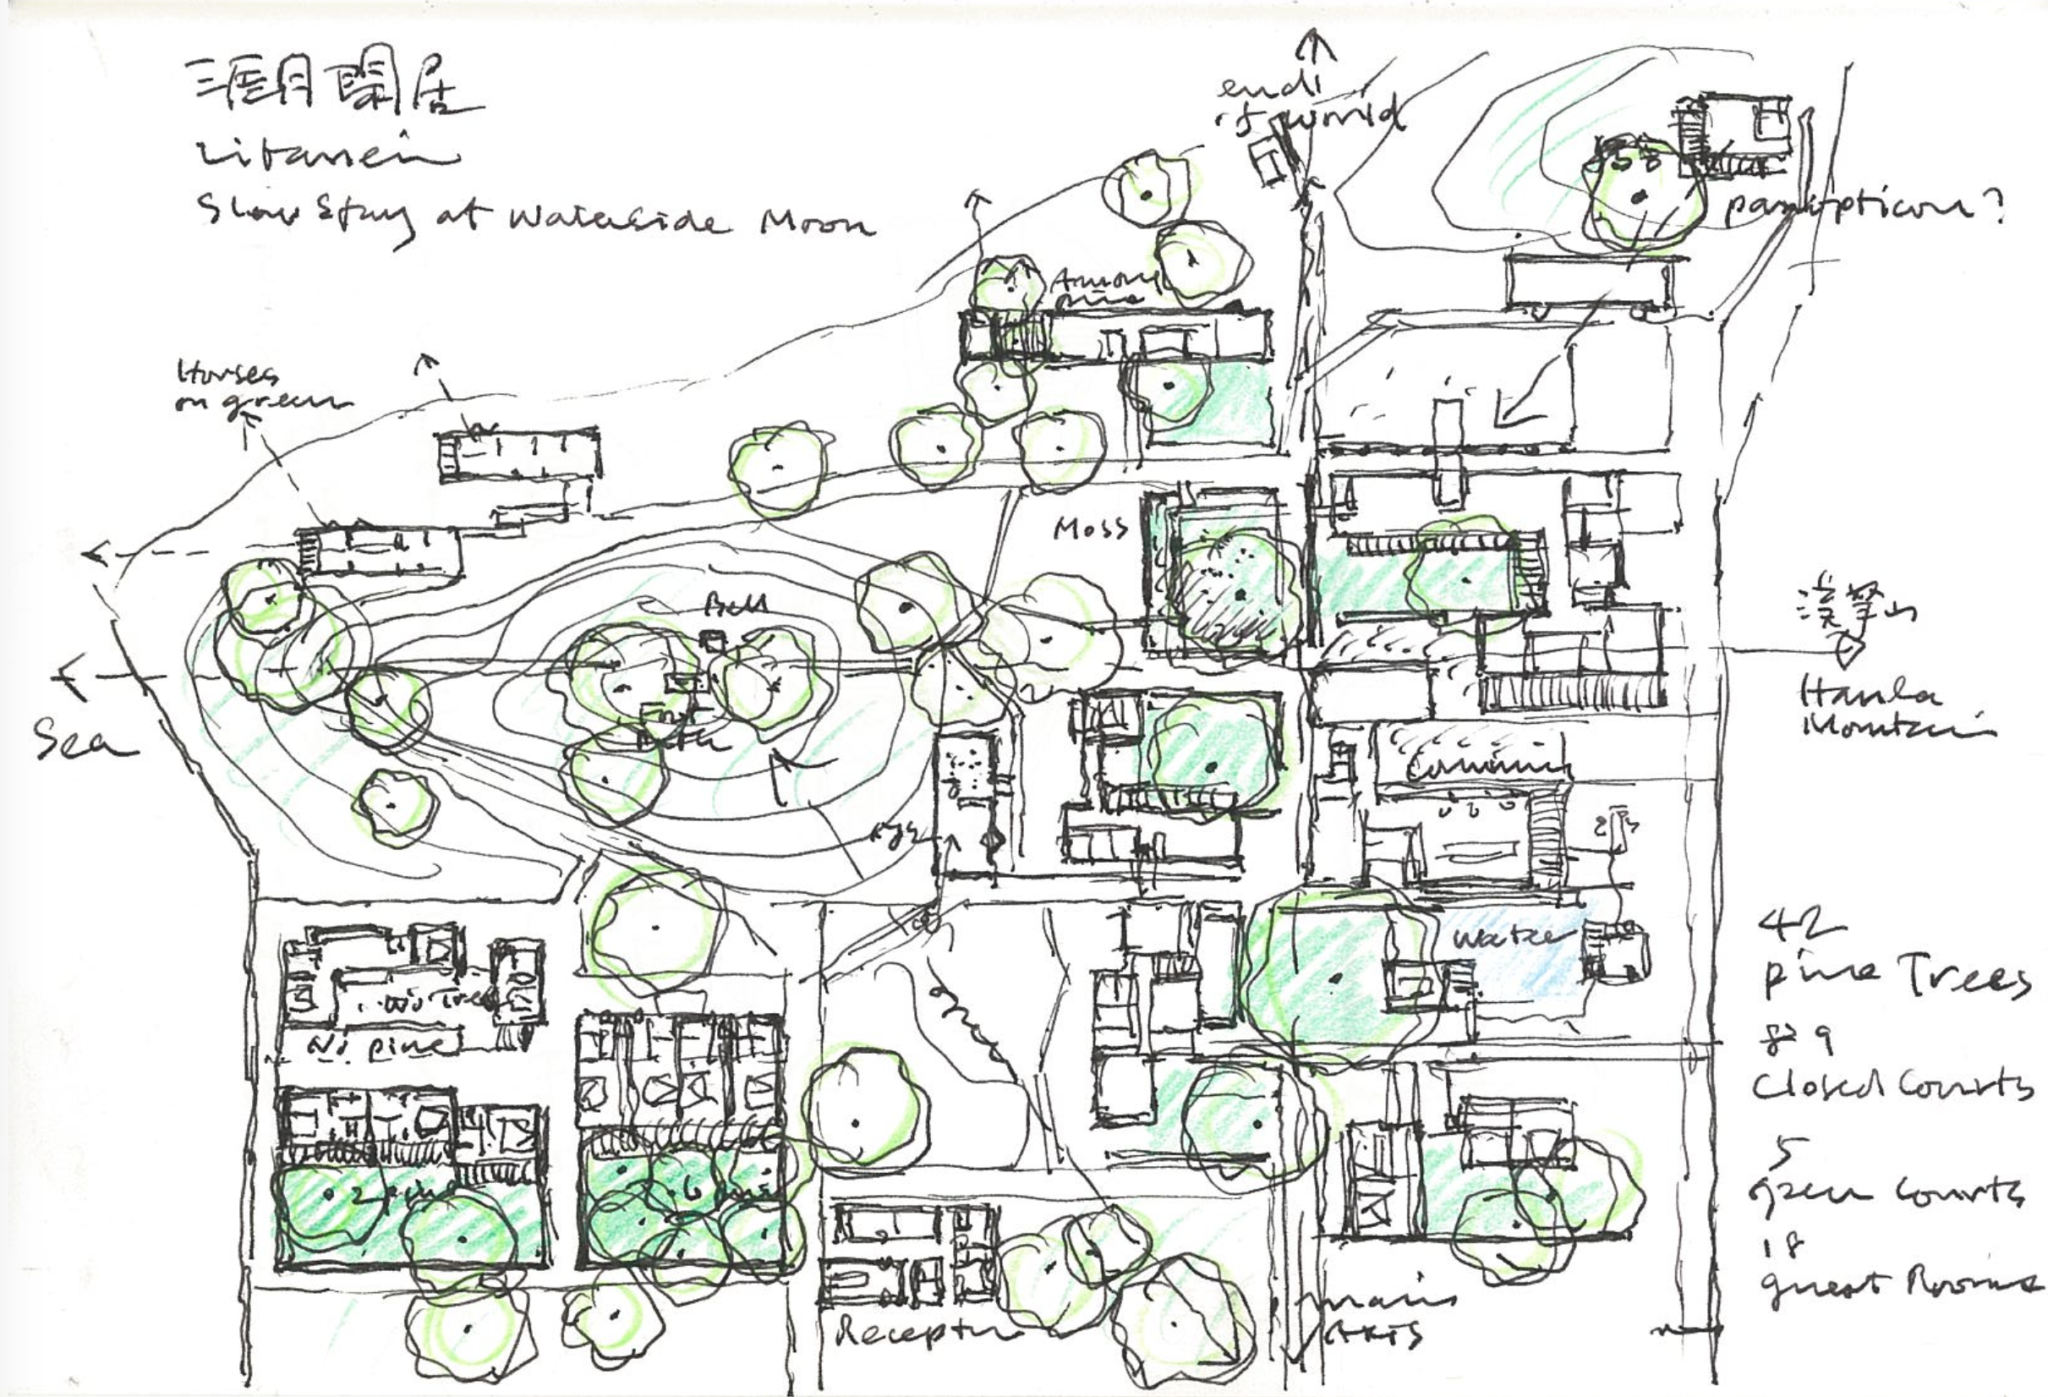 涯月閒居
Slow Stay at Waterside Moon
end
of world
panopticon?
Among
pine
Houses
on green
Moss
Bell
Foot
Bath
Sea
漢拏山
Hanla
Mountain
Water
No Tree
No pine
2 pine
6 pine
Reception
main
42
pine Trees
8~9
Closed Courts
5
green Courts
18
guest Rooms